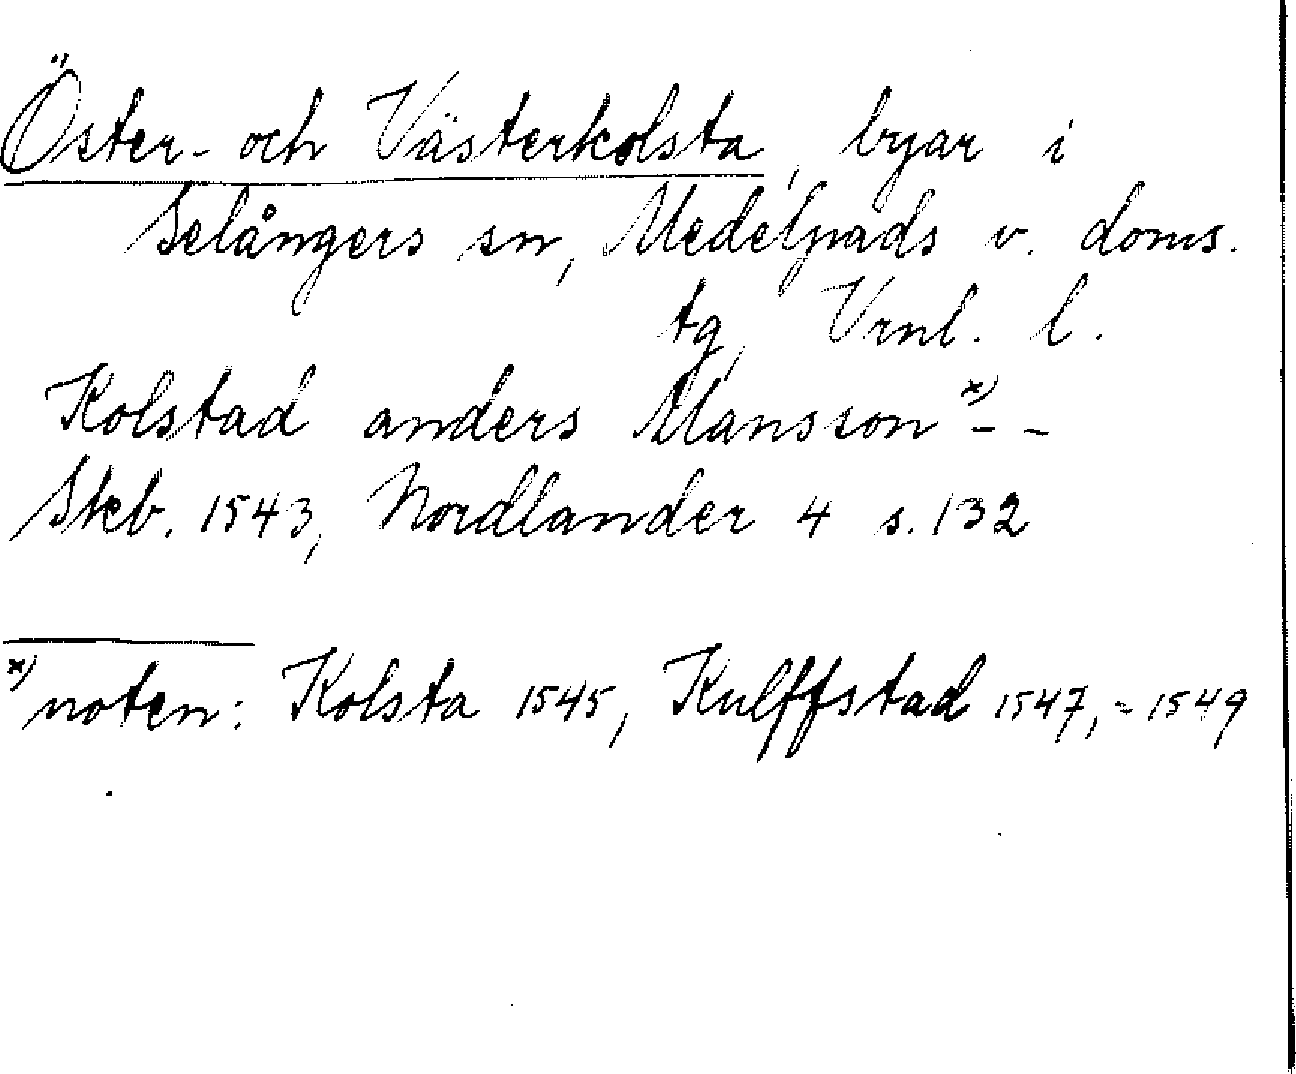 Öster- och Västerkolsta, byar i
Selångers sn, Medelpads v. doms.
tg, Vrnl. l.
Kolstad anders Mansson x) - -
Skb. 1543, Nordlander 4 s. 132
x) noten: Kolsta 1545, Kulffstad 1547, = 1549